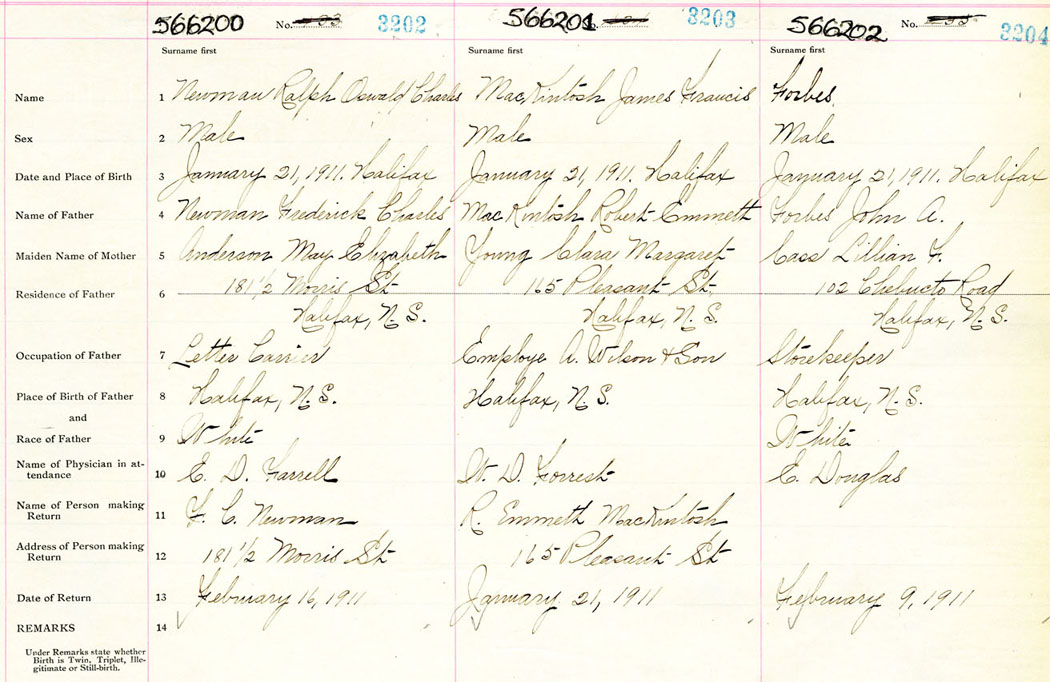 566200 No. 3202 566201 3203 566202 No. 3204
Surname first Surname first Surname first
Name 1 Newman Ralph Oswald Charles MacKintosh James Francis Forbes
Sex 2 Male Male Male
Date and Place of Birth 3 January 21, 1911. Halifax January 21, 1911. Halifax January 21, 1911. Halifax
Name of Father 4 Newman Frederick Charles MacKintosh Robert Emmett Forbes John A.
Maiden Name of Mother 5 Anderson May Elizabeth Young Clara Margaret Cass Lillian F.
Residence of Father 6 181 1/2 Morris St 165 Pleasant St. 102 Chebucto Road
Halifax, N.S. Halifax, N.S. Halifax, N.S.
Occupation of Father 7 Letter Carrier Employe A. Wilson & Son Storekeeper
Place of Birth of Father 8 Halifax, N.S. Halifax, N.S. Halifax, N.S.
and
Race of Father 9 White White
Name of Physician in at-
tendance 10 E. D. Farrell W. D. Forrest E. Douglas
Name of Person making
Return 11 F. C. Newman R. Emmeth MacKintosh
Address of Person making
Return 12 181 1/2 Morris St 165 Pleasant St
Date of Return 13 February 16, 1911 January 21, 1911 February 9, 1911
REMARKS 14
Under Remarks state whether
Birth is Twin, Triplet, Ille-
gitimate or Still-birth.